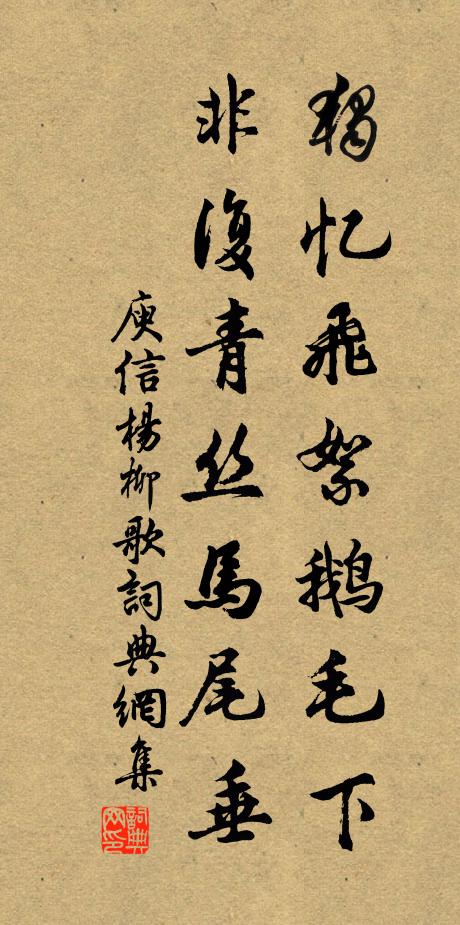 獨忆飛絮鵝毛下
非復青丝馬尾垂
庾信楊柳歌詞典網集
詞典網印